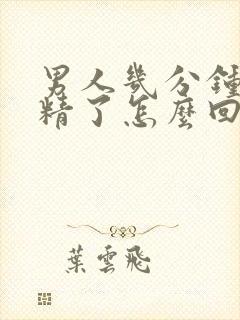 男人幾分鐘
精了怎麼回
葉雲飛